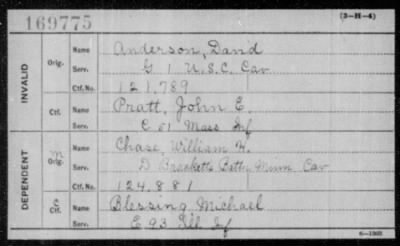 169775
(3-H-4)
INVALID
Orig.
Name Anderson, David
Serv. G 1 U.S.C. Cav
Ctf. No. 121,789
Ctf.
Name Pratt, John E.
Serv. C 61 Mass Inf
DEPENDENT
m
Orig.
Name Chase, William H.
Serv. D Bracketts Battn Minn Cav
Ctf. No. 124,881
c
Ctf.
Name Blessing, Michael
Serv. E 93 Ill Inf